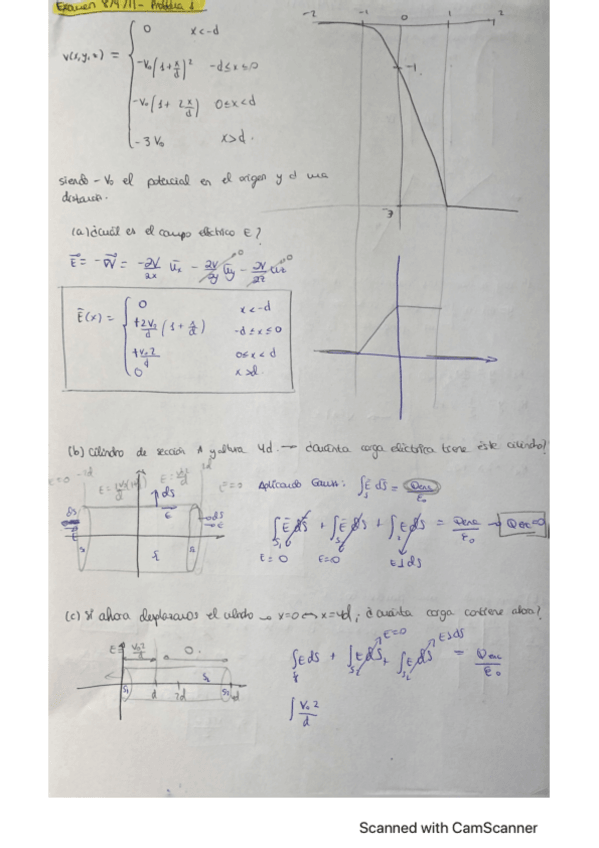 Examen 8/4/11 - Problema 1
-2 -1 0 1 2
V(x,y,z) = { 0 x < -d
-V₀(1 + x/d)² -d ≤ x ≤ 0
-V₀(1 + 2x/d) 0 ≤ x < d
-3V₀ x > d.
-1
-3
siendo -V₀ el potencial en el origen y d una
distancia.
(a) ¿cuál es el campo eléctrico E?
E = -∇V = -∂V/∂x ux - ∂V/∂y uy - ∂V/∂z uz
0 0
E(x) = { 0 x < -d
+2V₀/d (1 + x/d) -d ≤ x ≤ 0
+V₀2/d 0 ≤ x < d
0 x > d.
(b) Cilindro de sección A y altura 4d. → ¿cuánta carga eléctrica tiene este cilindro?
E = 0
E = 0
ds
E
ds
E
Aplicando Gauss: ∫s E ds = Qenc/ε₀
∫S₁ E ds + ∫ E ds + ∫ E ds = Qenc/ε₀ → Qenc = 0
E = 0 E = 0 E ⊥ ds
(c) Si ahora desplazamos el cilindro → x=0 → x=4d, ¿cuánta carga contiene ahora?
E V₀2/d 0
S₁ d 2d S₂
∫ E ds + ∫ E ds + ∫ E ds = Qenc/ε₀
E = 0 E ⊥ ds
∫ V₀2/d
Scanned with CamScanner